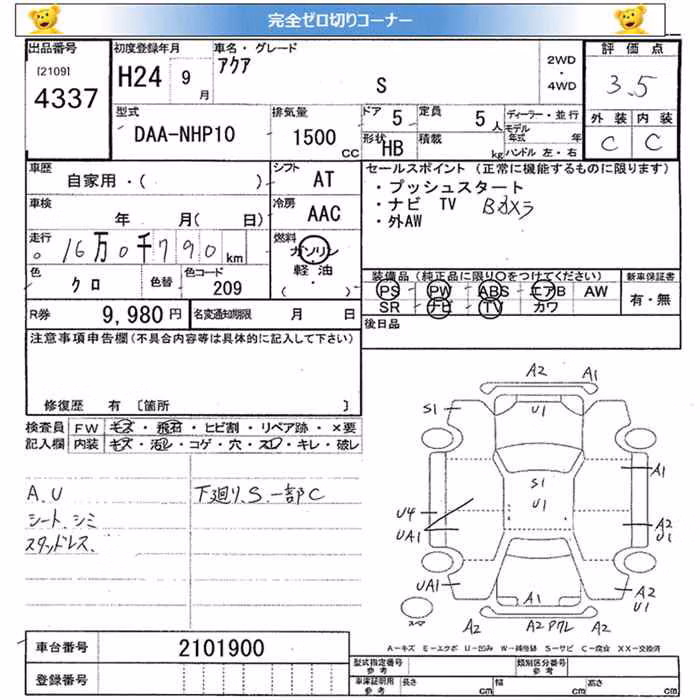 完全ゼロ切りコーナー
出品番号 初度登録年月 車名・グレード 評価点
[2109] アクア 2WD
4337 H24 9月 S ・ 3.5
4WD
型式 排気量 ドア 5 定員 5人 ディーラー・並行 外装 内装
DAA-NHP10 1500cc 形状 HB 積載 kg モデル年式 年 C C
ハンドル 左・右
車歴 シフト セールスポイント（正常に機能するものに限ります）
自家用・( ) AT ・プッシュスタート
車検 冷房 ・ナビ TV Bカメラ
年 月( 日) AAC ・外AW
走行 16万0千790km 燃料 ガソリン
軽油 装備品（純正品に限り○をつけてください） 新車保証書
色 クロ 色替 色コード 209 ( ・ ) PS PW ABS エアB AW 有・無
R券 9,980円 名変通知期限 月 日 SR ナビ TV カワ
後日品
注意事項申告欄(不具合内容等は具体的に記入して下さい)
修復歴 有 〔箇所 〕
検査員 FW キズ・飛石・ヒビ割・リペア跡・×要
記入欄 内装 キズ・汚レ・コゲ・穴・スレ・キレ・破レ
A.U 下廻り.S.一部C
シート.シミ
スタッドレス.
A2 A1
S1 U1
A1
S1
U1
U4 A2
UA1 U1
UA1 A1 A2
U1
スペア A2 A2 P7L A2
車台番号 2101900
登録番号
A－キズ E－エクボ U－凹み W－補修跡 S－サビ C－腐食 XX－交換済
型式指定番号 参考 類別区分番号 参考
車庫証明用 参考 長さ cm 幅 cm 高さ cm